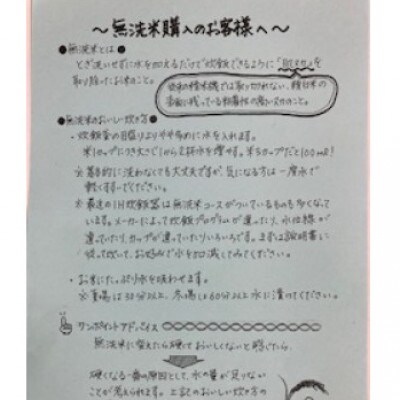 ～無洗米購入のお客様へ～
●無洗米とは●
とぎ洗いせずに水を加えるだけで炊飯できるように「肌ヌカ」を
取り除いたお米のこと。
従来の精米機では取りきれない、精白米の
表面に残っている粘着性の高いヌカのこと。
●無洗米のおいしい炊き方●
・炊飯釜の目盛りよりやや多めに水を入れます。
米1カップにつき大さじ1から2杯水を増やす。米5カップだと100ml！
※基本的に洗わなくても大丈夫ですが、気になる方は一度水で
軽くすすいでください。
※最近のIH炊飯器は無洗米コースがついているものも多くなって
います。メーカーによって炊飯プログラムが違ったり、水位線が
違っていたり、カップが違っていたりいろいろです。まずは説明書に
従って炊いて、お好みで水を加減してみてください。
・お米にたっぷり水を吸わせます。
※夏場は30分以上、冬場は60分以上水に漬けてください。
ワンポイントアドバイス
無洗米に替えたら硬くておいしくないと感じたら、
硬くなる一番の原因として、水の量が足りない
ことが考えられます。上記のおいしい炊き方の